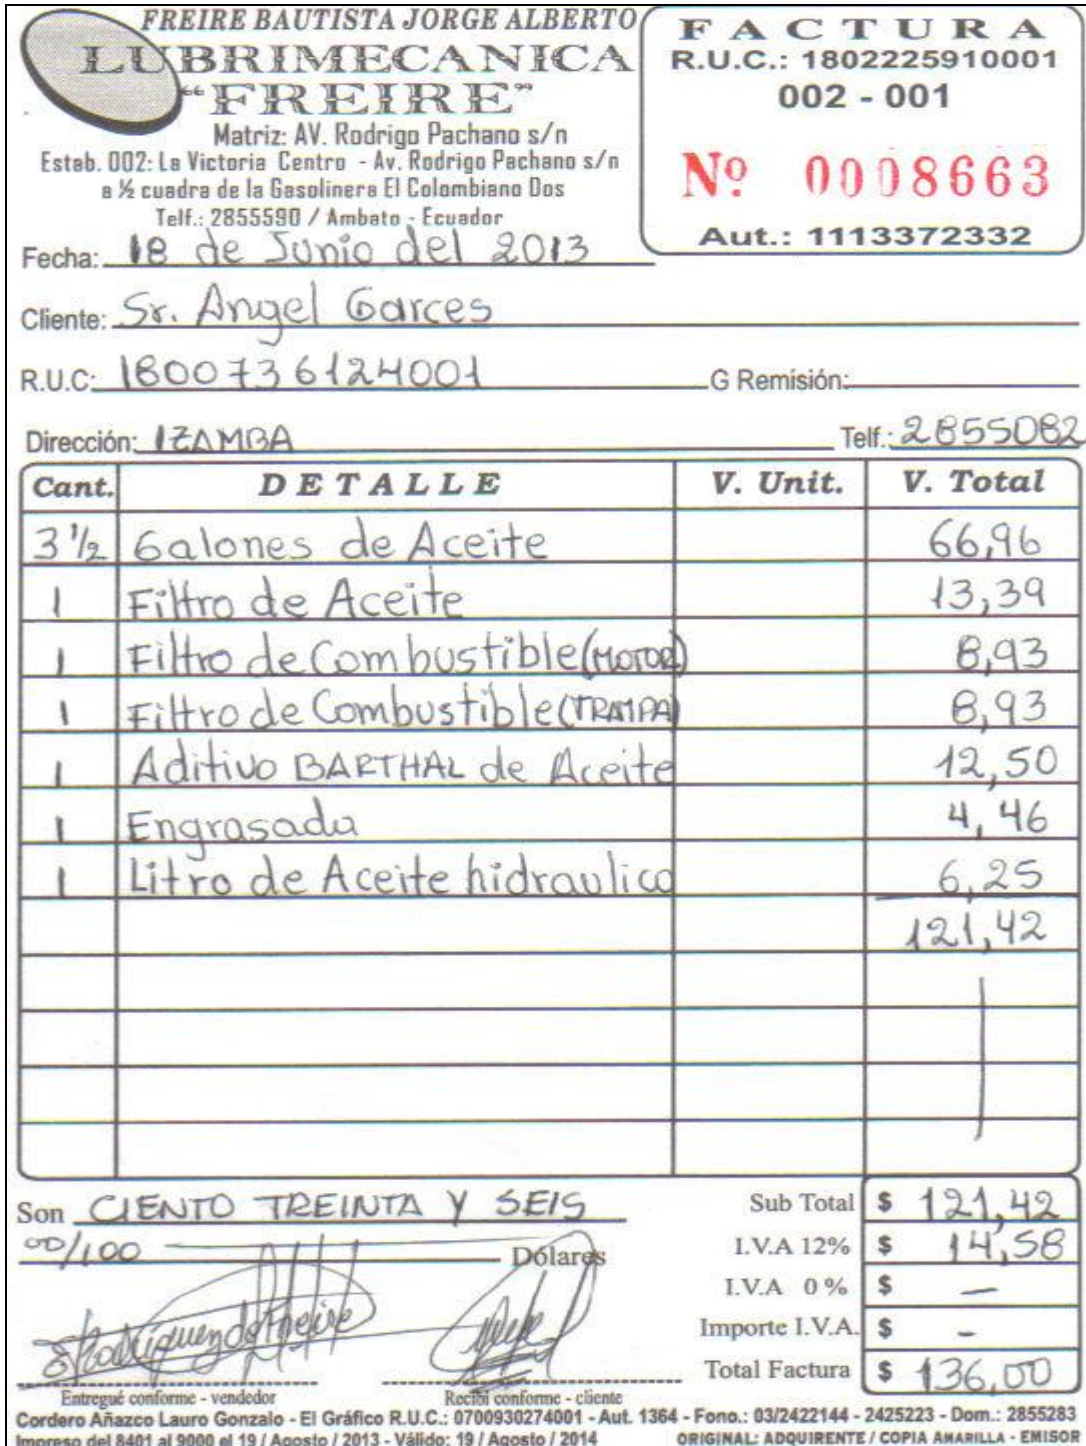 FREIRE BAUTISTA JORGE ALBERTO
LUBRIMECANICA
"FREIRE"
Matriz: AV. Rodrigo Pachano s/n
Estab. 002: La Victoria Centro - Av. Rodrigo Pachano s/n
a ½ cuadra de la Gasolinera El Colombiano Dos
Telf.: 2855590 / Ambato - Ecuador
FACTURA
R.U.C.: 1802225910001
002 - 001
Nº 0008663
Aut.: 1113372332
Fecha: 18 de Junio del 2013
Cliente: Sr. Angel Garces
R.U.C: 1800736124001 G Remisión:
Dirección: IZAMBA Telf.: 2855082
Cant. DETALLE V. Unit. V. Total
3 ½ Galones de Aceite 66,96
1 Filtro de Aceite 13,39
1 Filtro de Combustible (MOTOR) 8,93
1 Filtro de Combustible (TRAMPA) 8,93
1 Aditivo BARTHAL de Aceite 12,50
1 Engrasada 4,46
1 Litro de Aceite hidraulico 6,25
121,42
Son CIENTO TREINTA Y SEIS
00/100 Dólares
Sub Total $ 121,42
I.V.A 12% $ 14,58
I.V.A 0 % $ —
Importe I.V.A. $ —
Total Factura $ 136,00
Entregué conforme - vendedor Recibí conforme - cliente
Cordero Añazco Lauro Gonzalo - El Gráfico R.U.C.: 0700930274001 - Aut. 1364 - Fono.: 03/2422144 - 2425223 - Dom.: 2855283
Impreso del 8401 al 9000 el 19 / Agosto / 2013 - Válido: 19 / Agosto / 2014 ORIGINAL: ADQUIRENTE / COPIA AMARILLA - EMISOR